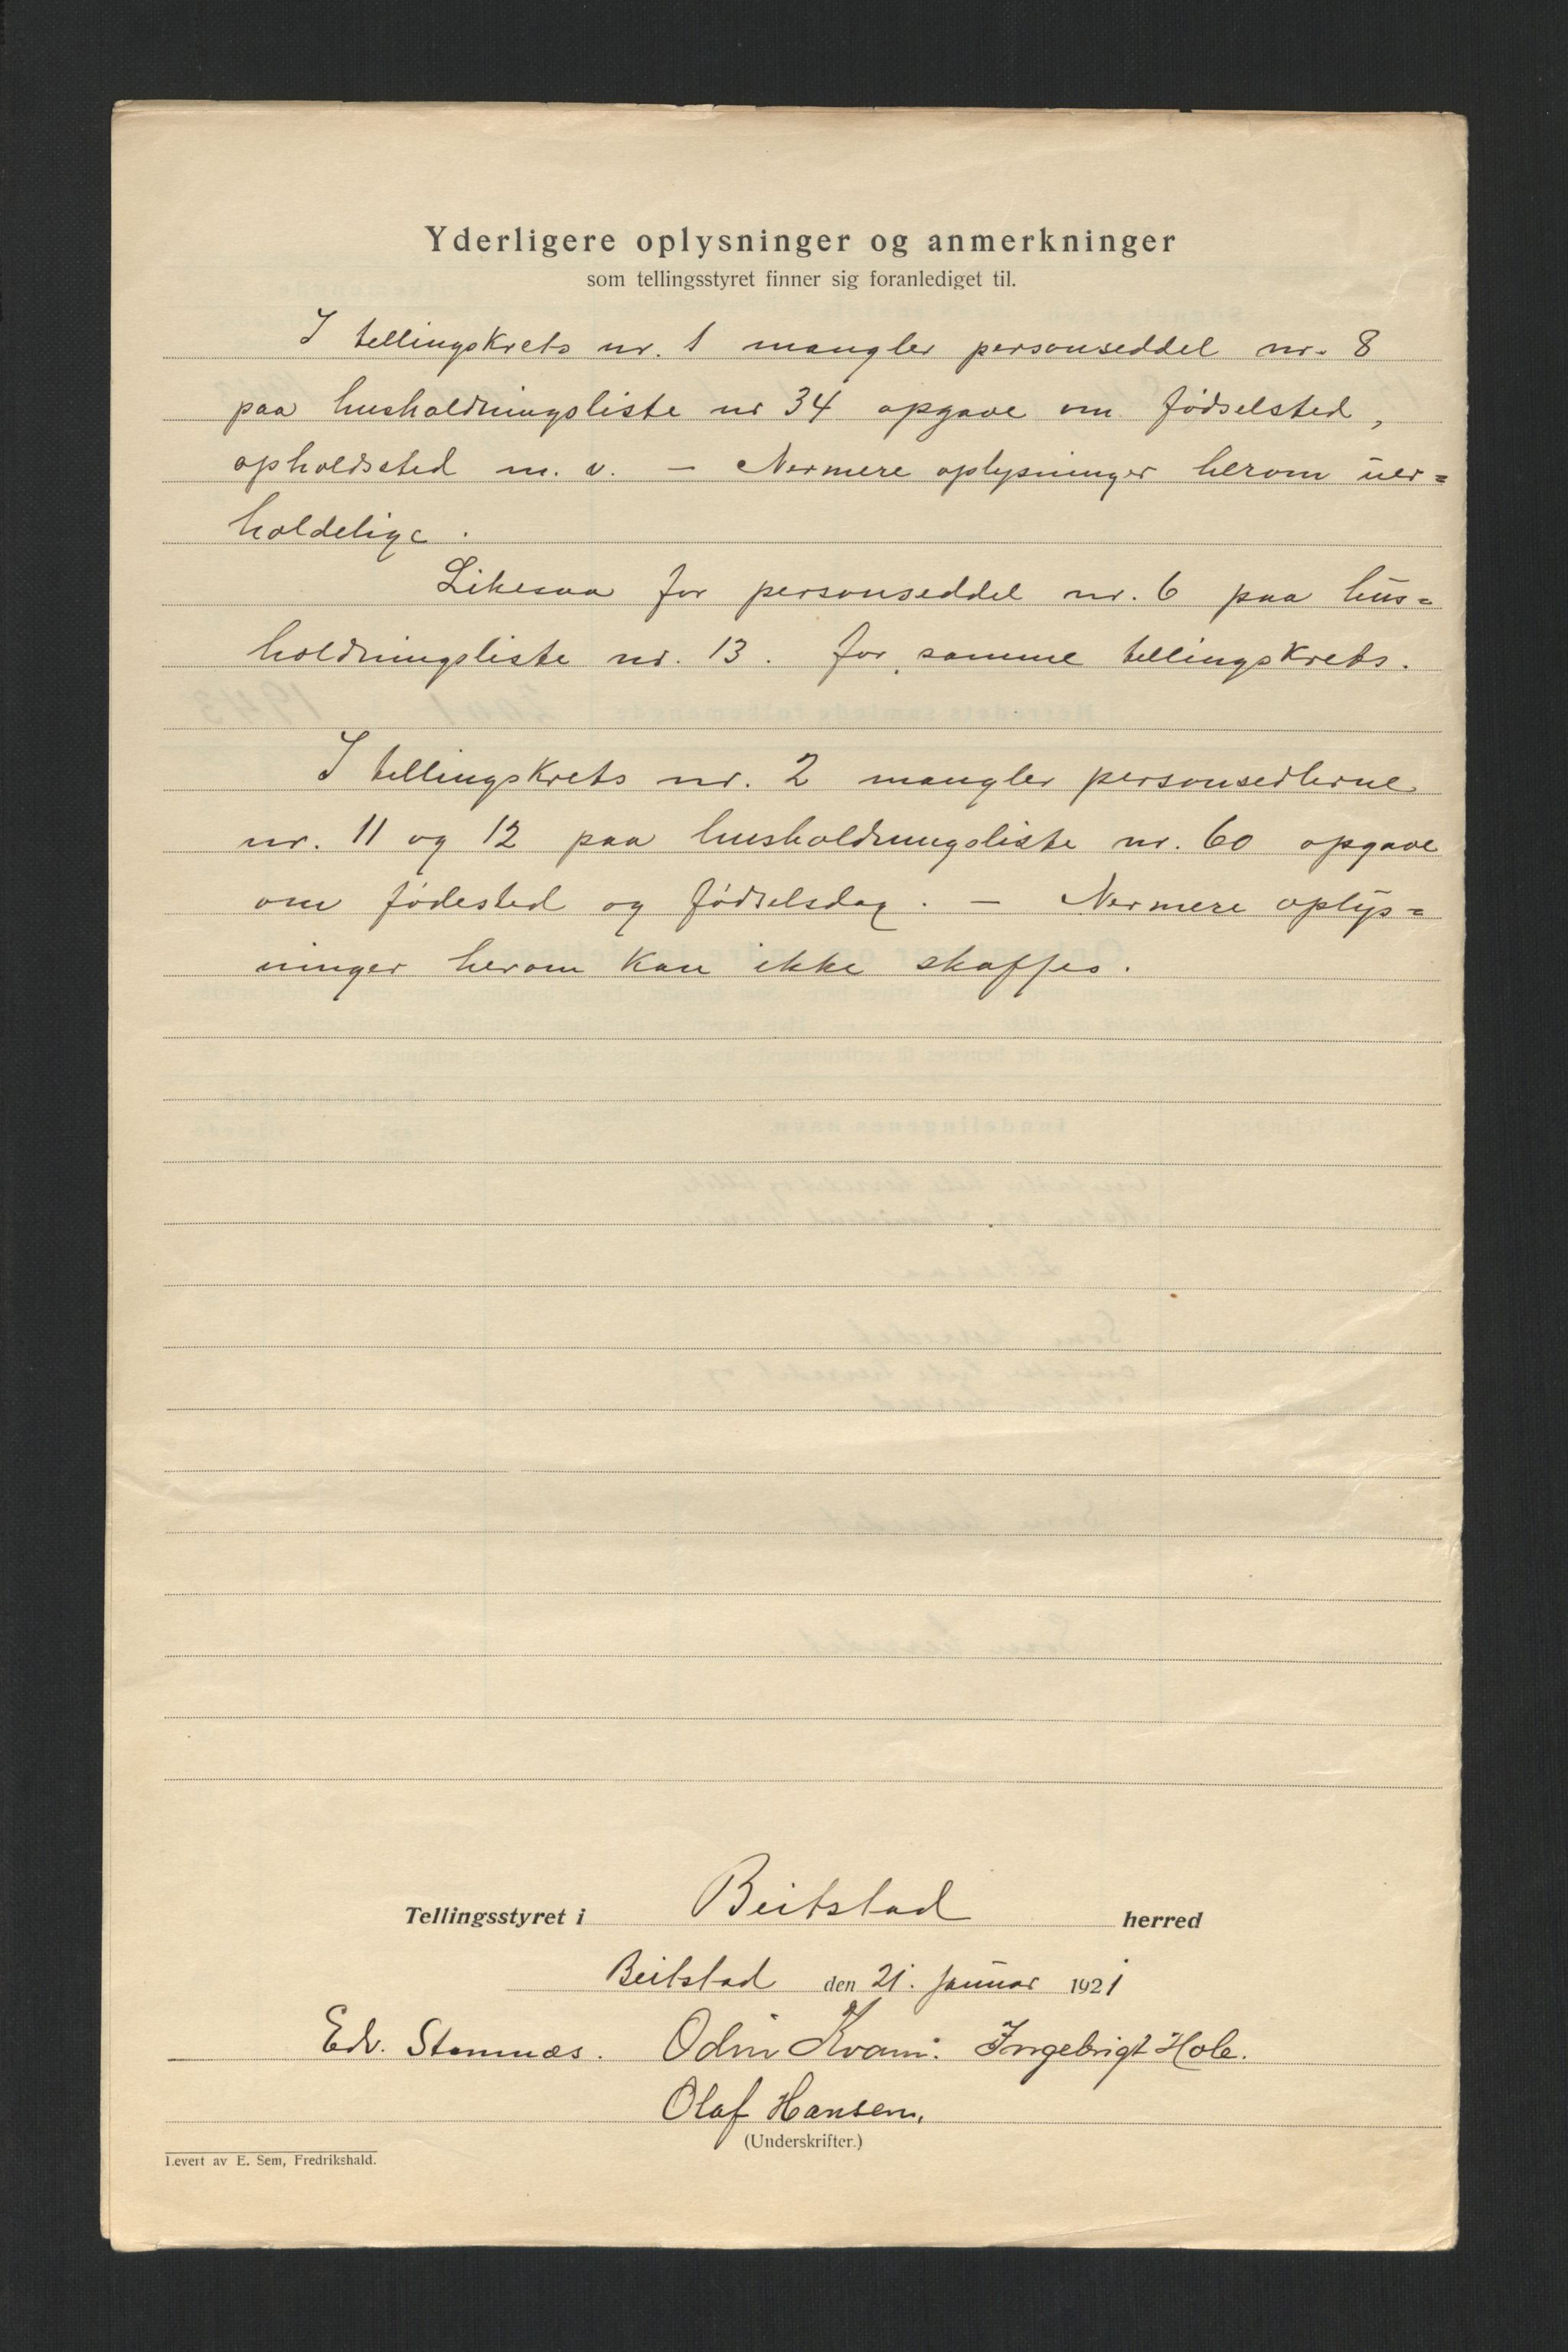 Yderligere oplysninger og anmerkninger
som tellingsstyret finner sig foranlediget til.
I tellingskrets nr. 1 mangler personseddel nr. 8
paa husholdningsliste nr 34 opgave om fødselsted,
opholdssted m. v. — Nermere oplysninger herom uer=
holdelige.
Likesaa for personseddel nr. 6 paa hus=
holdningsliste nr. 13. for samme tellingskrets.
I tellingskrets nr. 2 mangler personsedlerne
nr. 11 og 12 paa husholdningsliste nr. 60 opgave
om fødested og fødselsdag. — Nermere oplys=
ninger herom kan ikke skaffes.
Tellingsstyret i Beitstad herred
Beitstad den 21. januar 1921
Edv. Stamnæs. Odin Kvam. Ingebrigt Hole.
Olaf Hansen.
(Underskrifter.)
Levert av E. Sem, Fredrikshald.